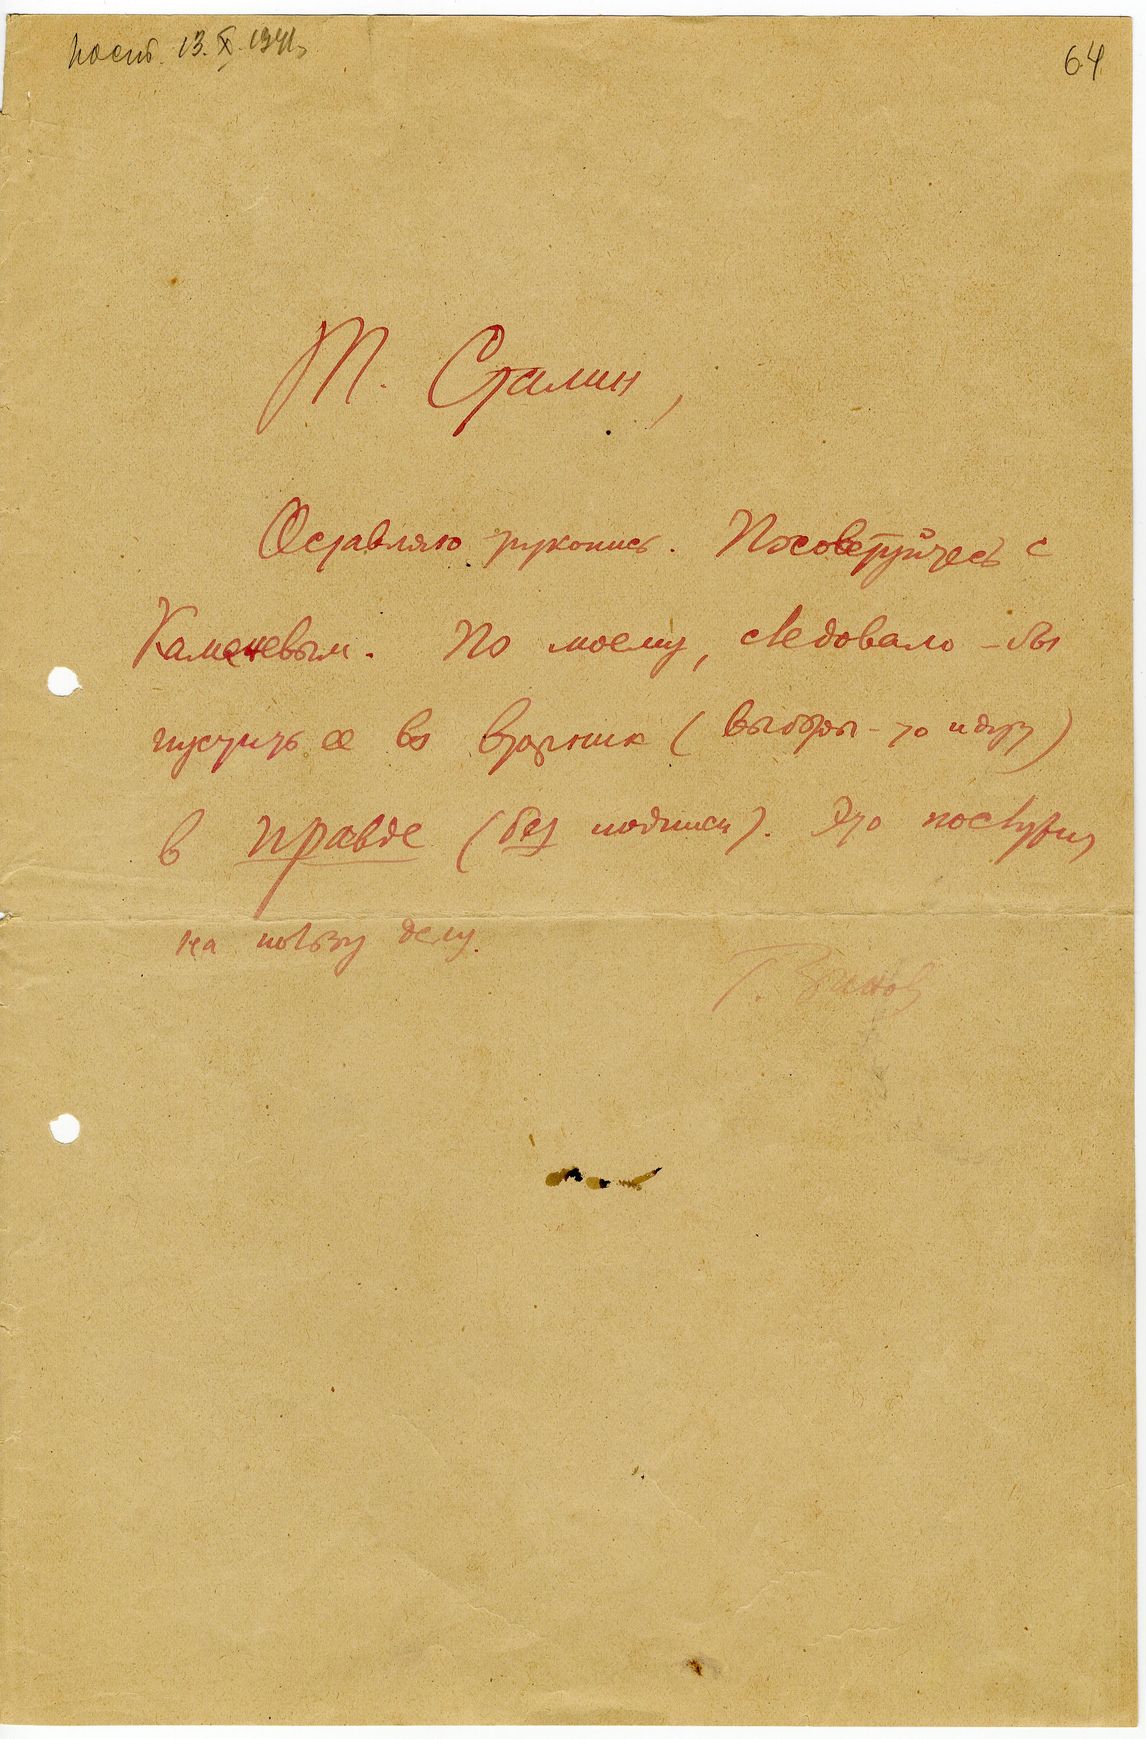 Пост. 13.X.1941
64
Т. Сталин,
Оставляю рукопись. Посоветуйтесь с
Каменевым. По моему, следовало-бы
пустить ее во вторник (выборы-то идут)
в Правде (без подписи). Это послужит
на пользу делу.
Г.